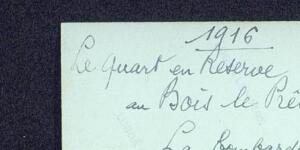 1916
Le Quart en Réserve
au Bois le Prê
La bombard